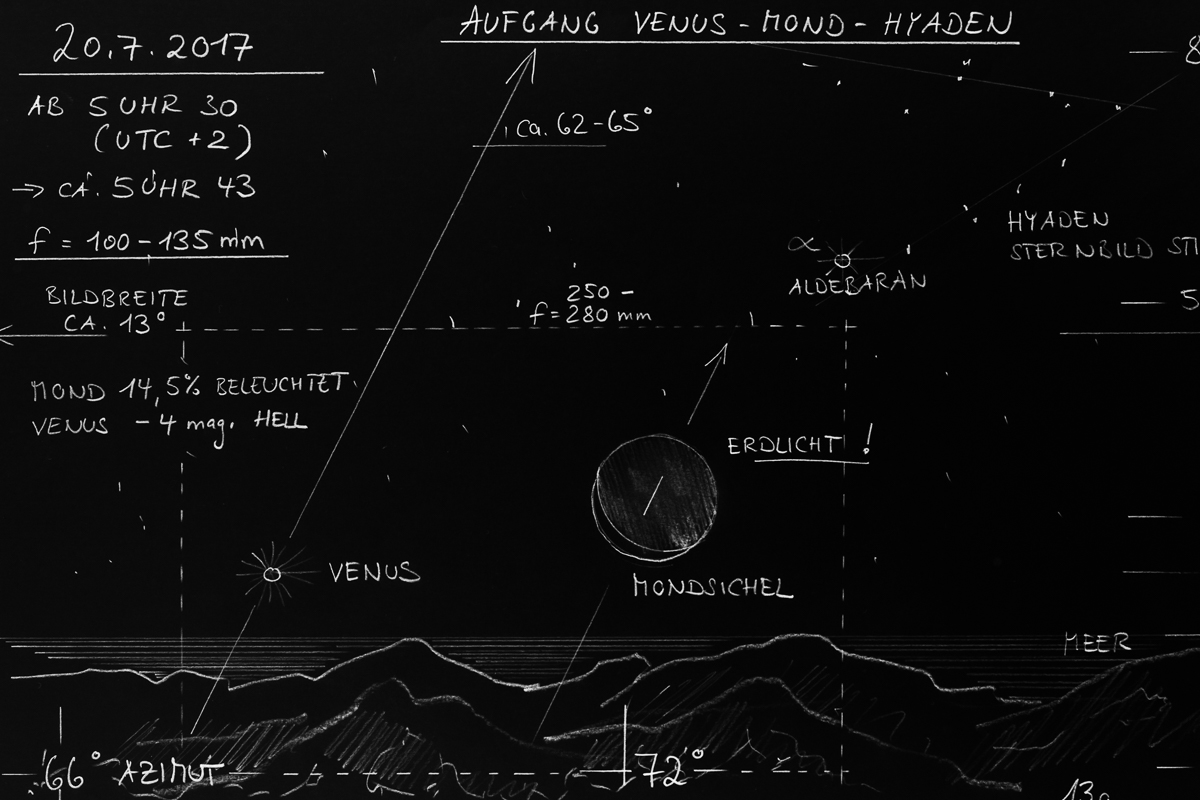 AUFGANG VENUS - MOND - HYADEN
20.7.2017
AB 5 UHR 30
(UTC +2)
→ CA. 5 UHR 43
f = 100 - 135 mm
BILDBREITE
CA. 13°
MOND 14,5% BELEUCHTET
VENUS - 4 mag. HELL
ca. 62-65°
8
HYADEN
STERNBILD STI
α
ALDEBARAN
5
250 -
f = 280 mm
ERDLICHT !
VENUS
MONDSICHEL
MEER
66° AZIMUT
72°